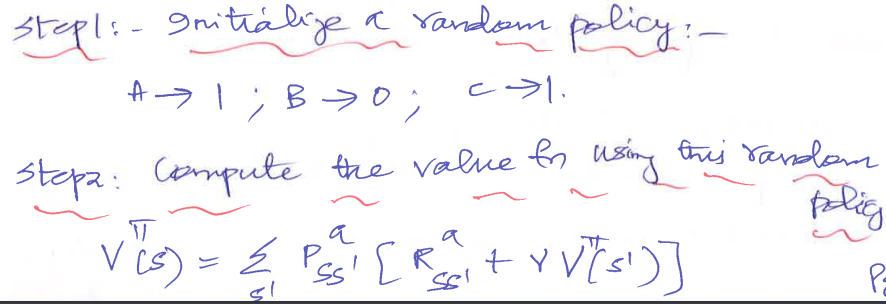 Step1:- Initialize a random policy:-
A → 1 ; B → 0 ; C → 1.
Step2: Compute the value fn using this random
policy
V^π(s) = Σ_s' P^a_ss' [ R^a_ss' + γ V^π(s') ]